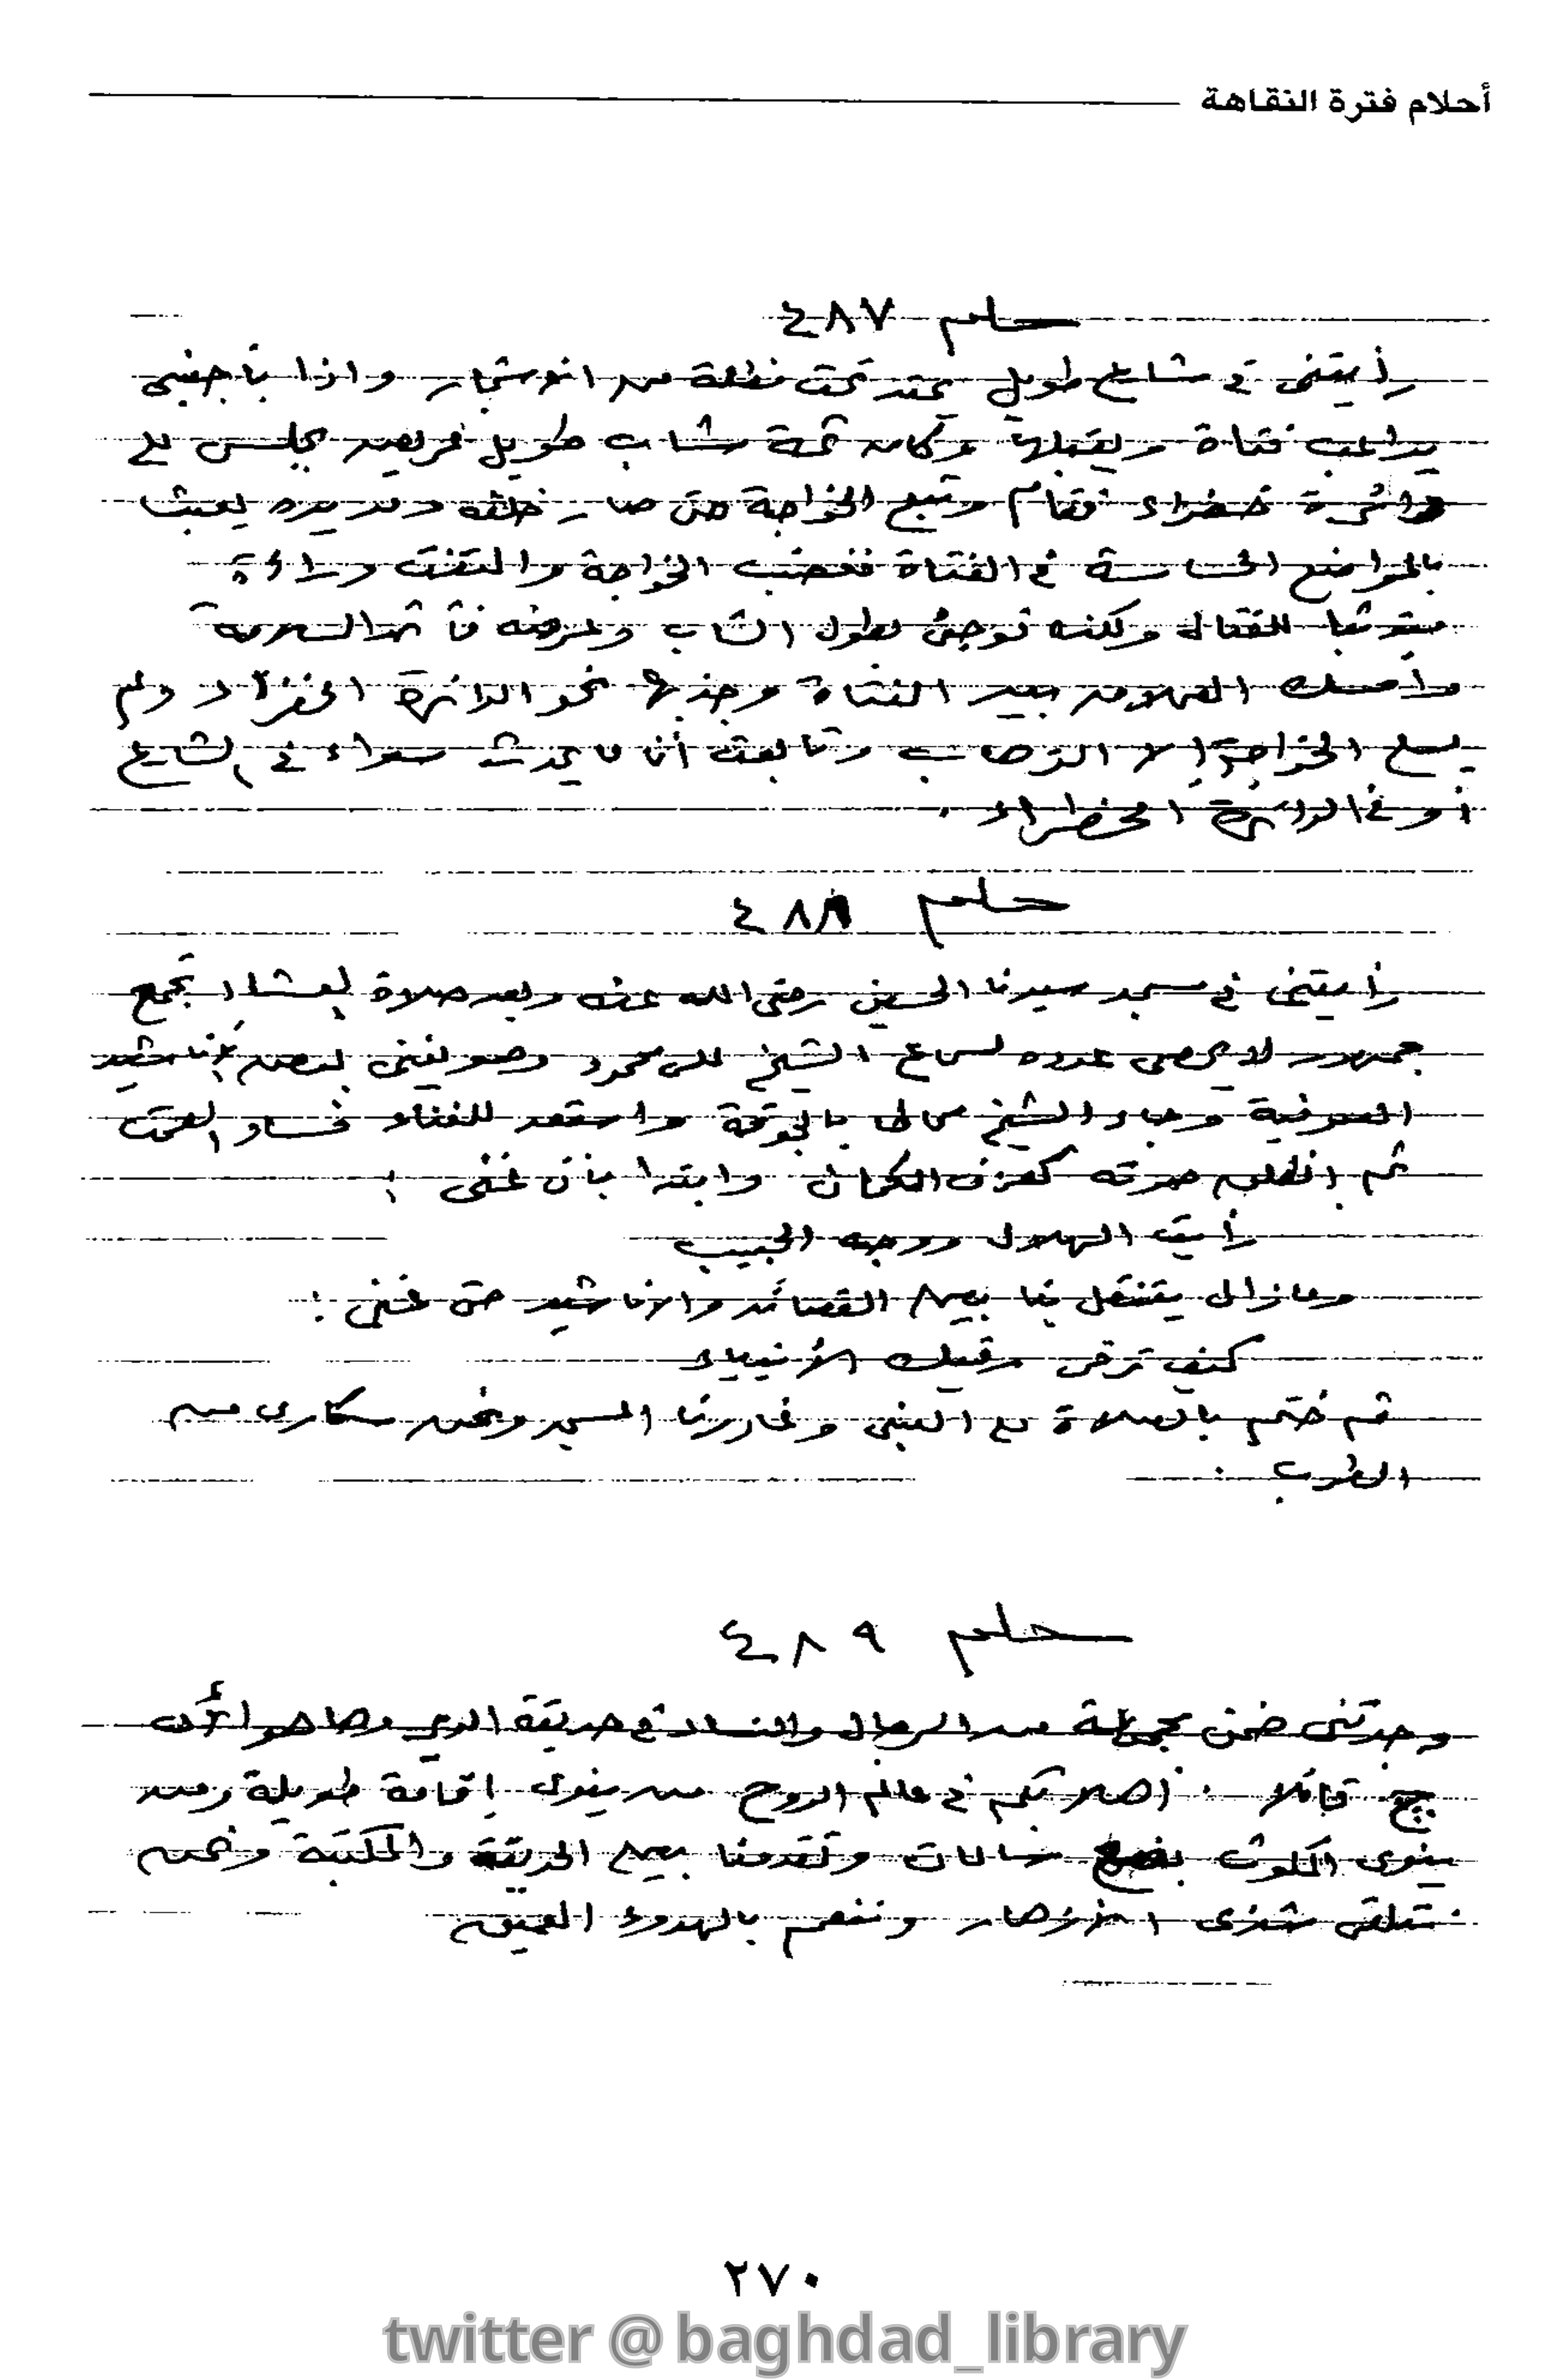 أحلام فترة النقاهة
حلم ٤٨٧
رأيتنى فى شارع طويل يمتد تحت مظلة من الاشجار واذا بأجنبى
يداعب فتاة ويقبلها وكان ثمة شاب طويل عريض يجلس على
دائرة خضراء فقام وتبع الخواجة حتى صار خلفه ومد يده يعبث
بالمواضع الحساسة فى الفتاة فغضب الخواجة والتفت وراءه
متوثبا للقتال ولكنه فوجئ بطول الشاب وعرضه فآثر السلامة
وأمسك العملاق بيد الفتاة وجذبها نحو الدائرة الخضراء ولم
يسع الخواجة إلا الذهاب وتابعت أنا ما يحدث سواء فى الشارع
أو فى الدائرة الخضراء .
حلم ٤٨٨
رأيتنى فى مسجد سيدنا الحسين رضى الله عنه وبعد صلاة العشاء تجمع
جمهور لا يحصى عدده لسماع الشيخ على محمود وهو يغنى بعض الأناشيد
الصوفية وجاء الشيخ بالجوقة واستعد للغناء فساد الصمت
ثم انطلق صوته كعزف الكمان وابتدا بأن غنى :
رأيت الهلال ووجه الحبيب
ومازال يتنقل بنا بين القصائد والاناشيد حتى غنى :
كيف ترقى رقيك الأنبياء
ثم ختم بالصلاة على النبى وغادرنا المسجد ونحن سكارى من
الطرب .
حلم ٤٨٩
وجدتنى ضمن مجموعة من الرجال والنساء فى حديقة الدير وها هو الأب
قائلا . أهلا بكم فى عالم الروح من ينوى إقامة طويلة ومن
ينوى المكوث بضع ساعات وتقدمنا بين الحديقة والمكتبة ونحن
نتلقى شذى الازهار وننعم بالهدوء العميق
٢٧٠
twitter @baghdad_library